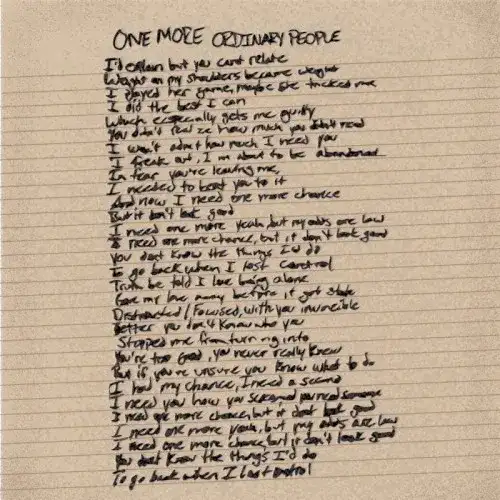 ONE MORE ORDINARY PEOPLE
I'd explain but you cant relate
Weight on my shoulders became weight
I played her game, maybe she tricked me
I did the best I can
Which especially gets me guilty
You didn't realize how much you didn't need
I won't admit how much I need you
I freak out, I'm about to be abandoned
In fear you're leaving me,
I needed to beat you to it
And now I need one more chance
But it don't look good
I need one more yeah, but my odds are low
I need one more chance, but it don't look good
You dont know the things I'd do
To go back when I lost control
Truth be told I love being alone
Gave my love away before it got stole
Distracted / Focused, with you invincible
Better you don't know who you
Stopped me from turning into
You're too Good, you never really knew
But if you're unsure you know what to do
I had my chance, I need a second
I need you how you screamed you need someone
I need one more chance, but it dont look good
I need one more yeah, but my odds are low
I need one more chance, but it don't look good
You dont know the things I'd do
To go back when I lost control